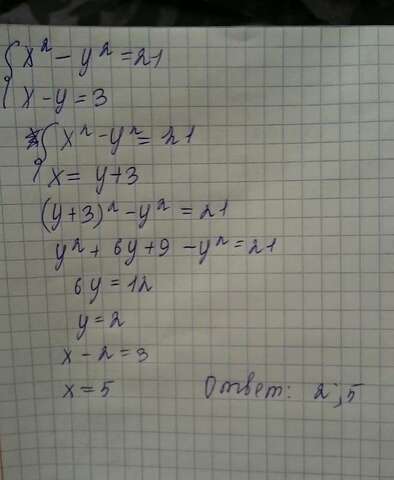 x² - y² = 21
x - y = 3
x² - y² = 21
x = y + 3
(y + 3)² - y² = 21
y² + 6y + 9 - y² = 21
6y = 12
y = 2
x - 2 = 3
x = 5 Ответ: 2; 5